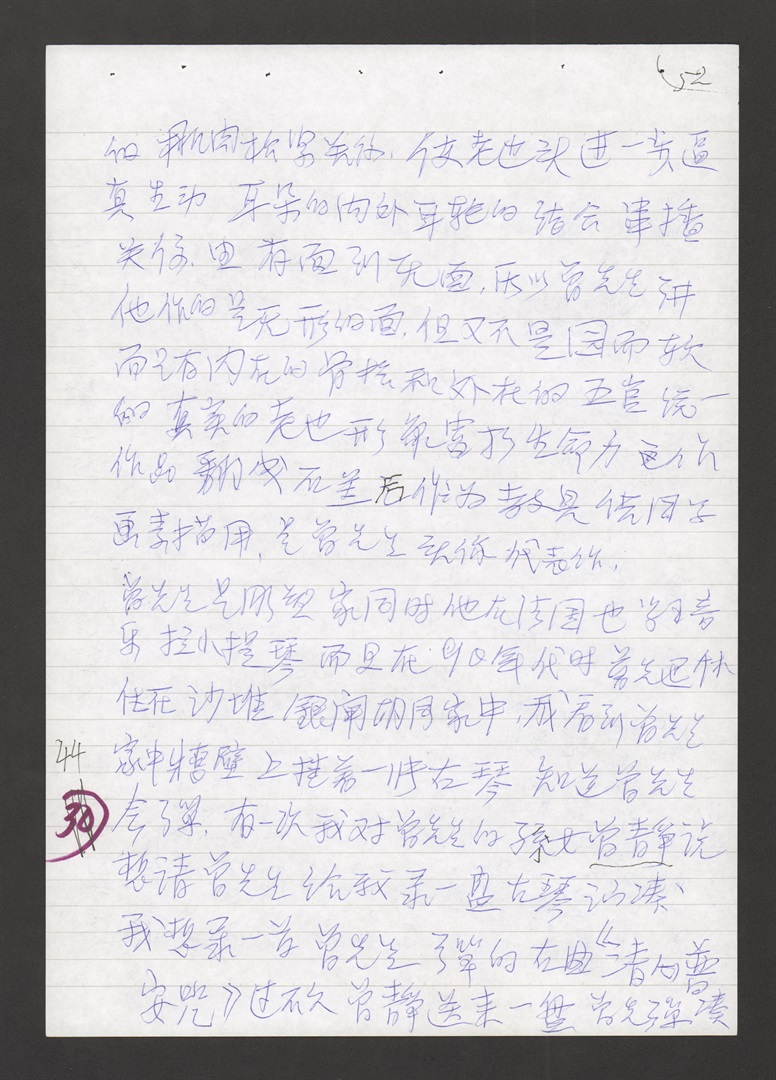 52
的肌肉松紧关系，使老也头进一步逼
真生动 耳朵的内外耳轮的结合串插
关系、由有面到无面，所以曾先生讲
他作的是无形的面，但又不是园而软
而是有内在的骨格和外在的五官统一
的真实的老也形象富於生命力 这作
作品翻成石羔后作为教具供同学
画素描用，是曾先生头像代表作。
曾先生是雕塑家同时他在法国也学习音
乐拉小提琴 而且在90年代时曾先已休
住在沙堆 银闸胡同家中，我看到曾先生
44
家中墙壁上挂着一张古琴 知道曾先生
30
会弹，有一次我对曾先生的孙女曾静说
想请曾先生给我录一盘古琴演凑
我想录一首曾先生弹的古曲《清
安咒》过不久曾静送来一盘曾先弹凑